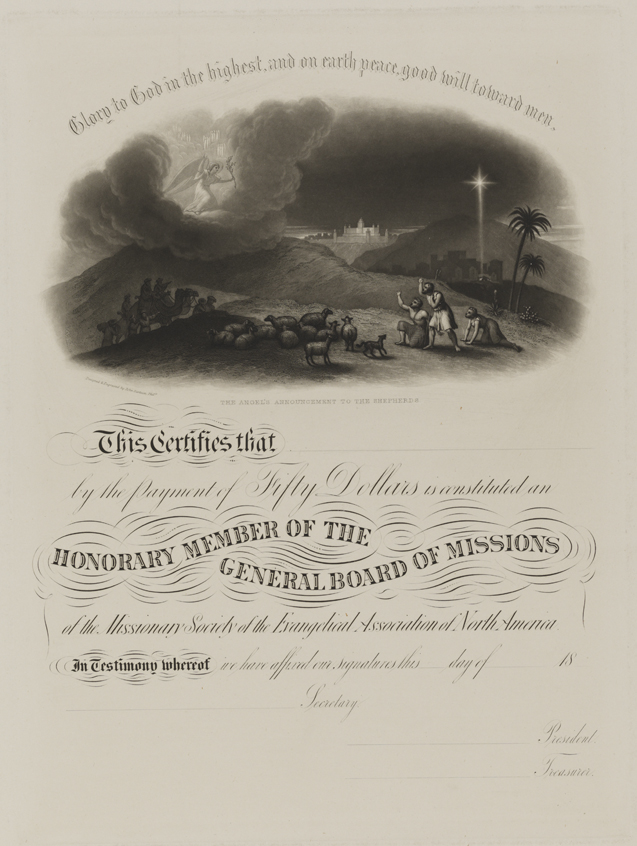 Glory to God in the highest, and on earth peace, good will toward men.
THE ANGEL'S ANNOUNCEMENT TO THE SHEPHERDS
This Certifies that
by the payment of Fifty Dollars is constituted an
HONORARY MEMBER OF THE
GENERAL BOARD OF MISSIONS
of the Missionary Society of the Evangelical Association of North America
In Testimony whereof we have affixed our signatures this day of 18
Secretary.
President.
Treasurer.